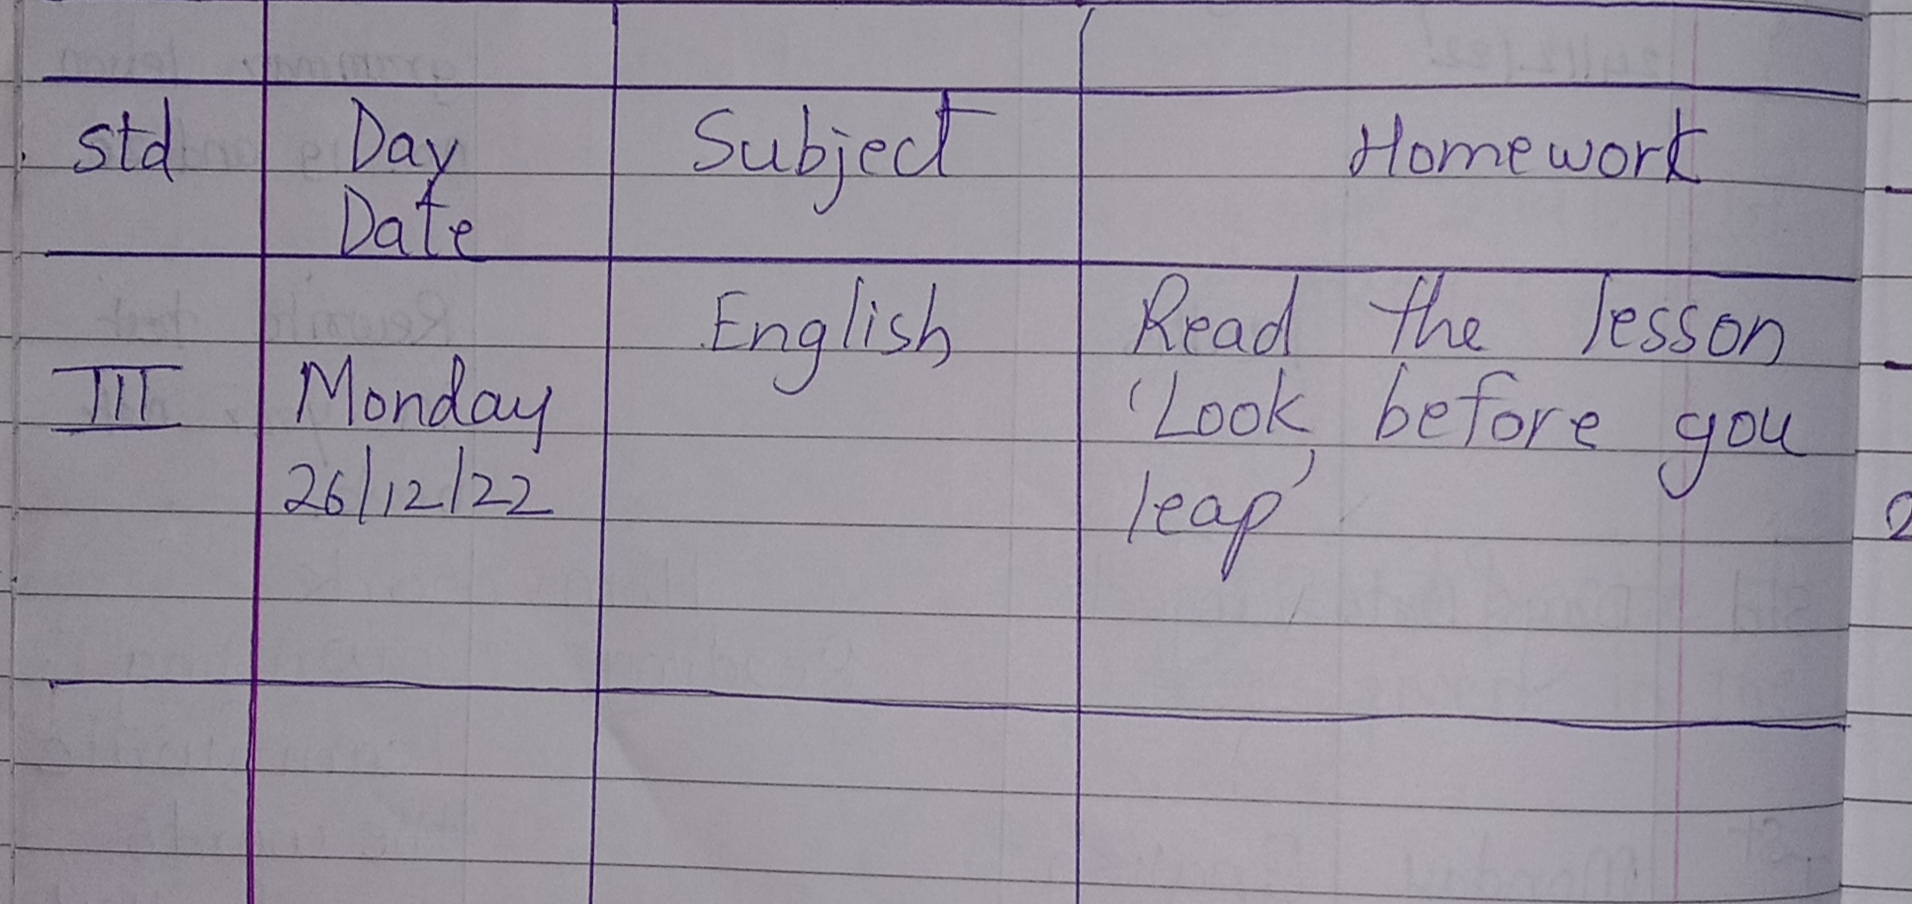 std Day Subject Homework
Date
English Read the lesson
III Monday 'Look before you
26/12/22 leap'